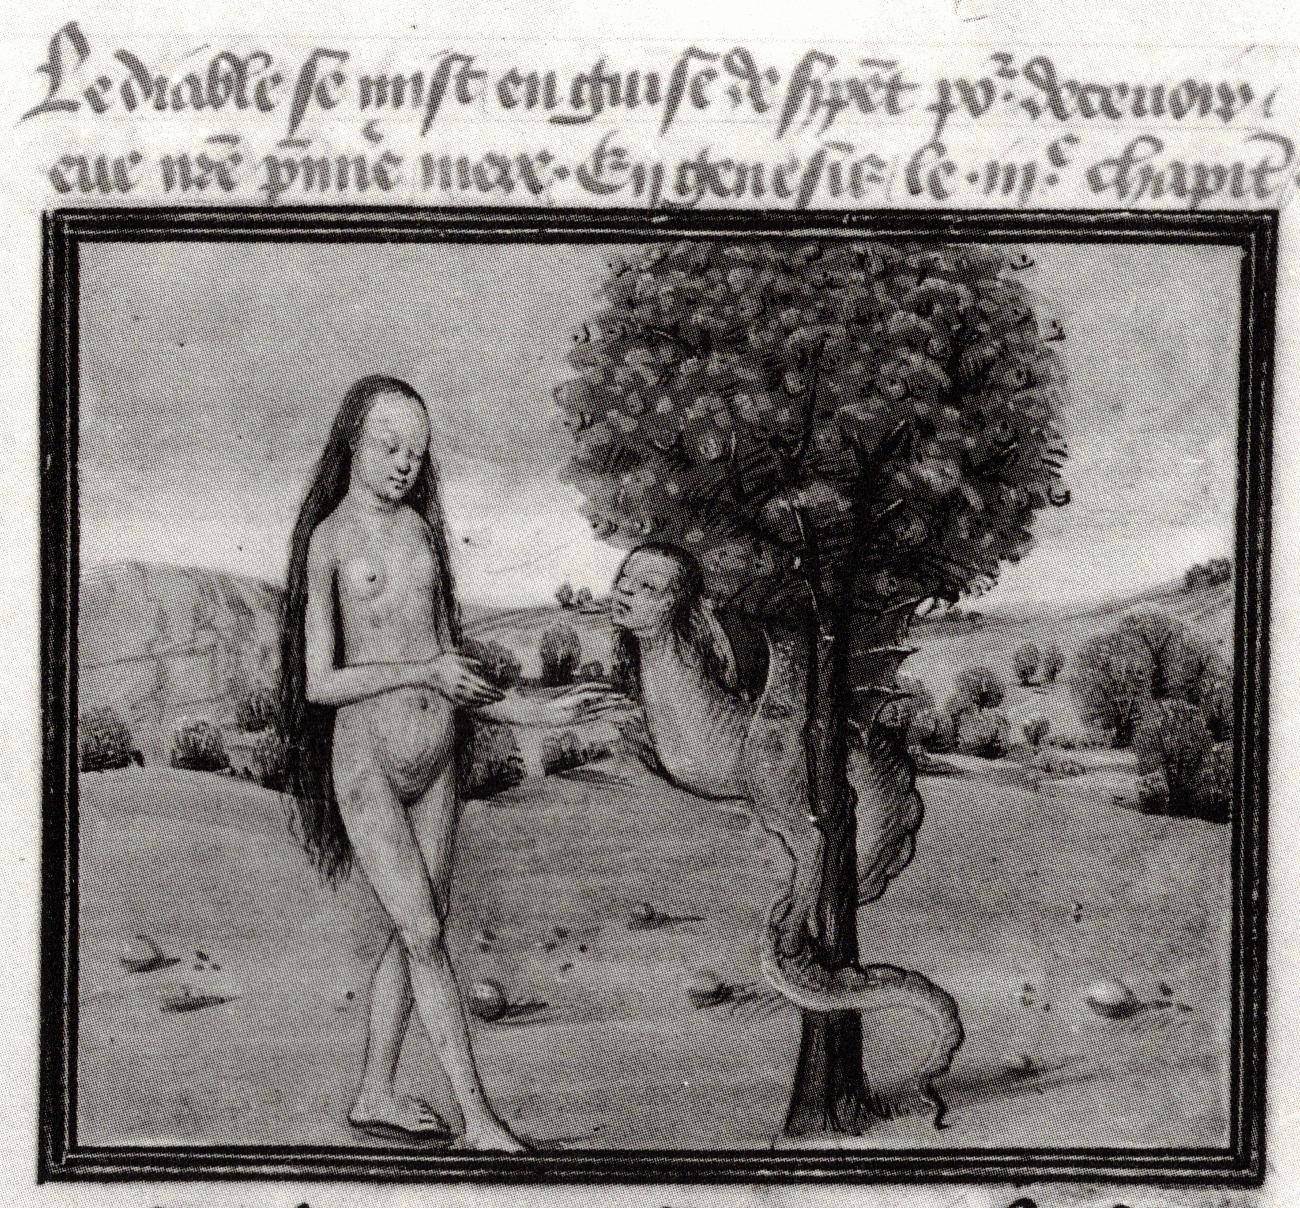 Le diable se mist en guise de sṕēt poʳ decevoir
eve nr̄e p̄miē mere. En genesis le .iijᵉ. chapit̄